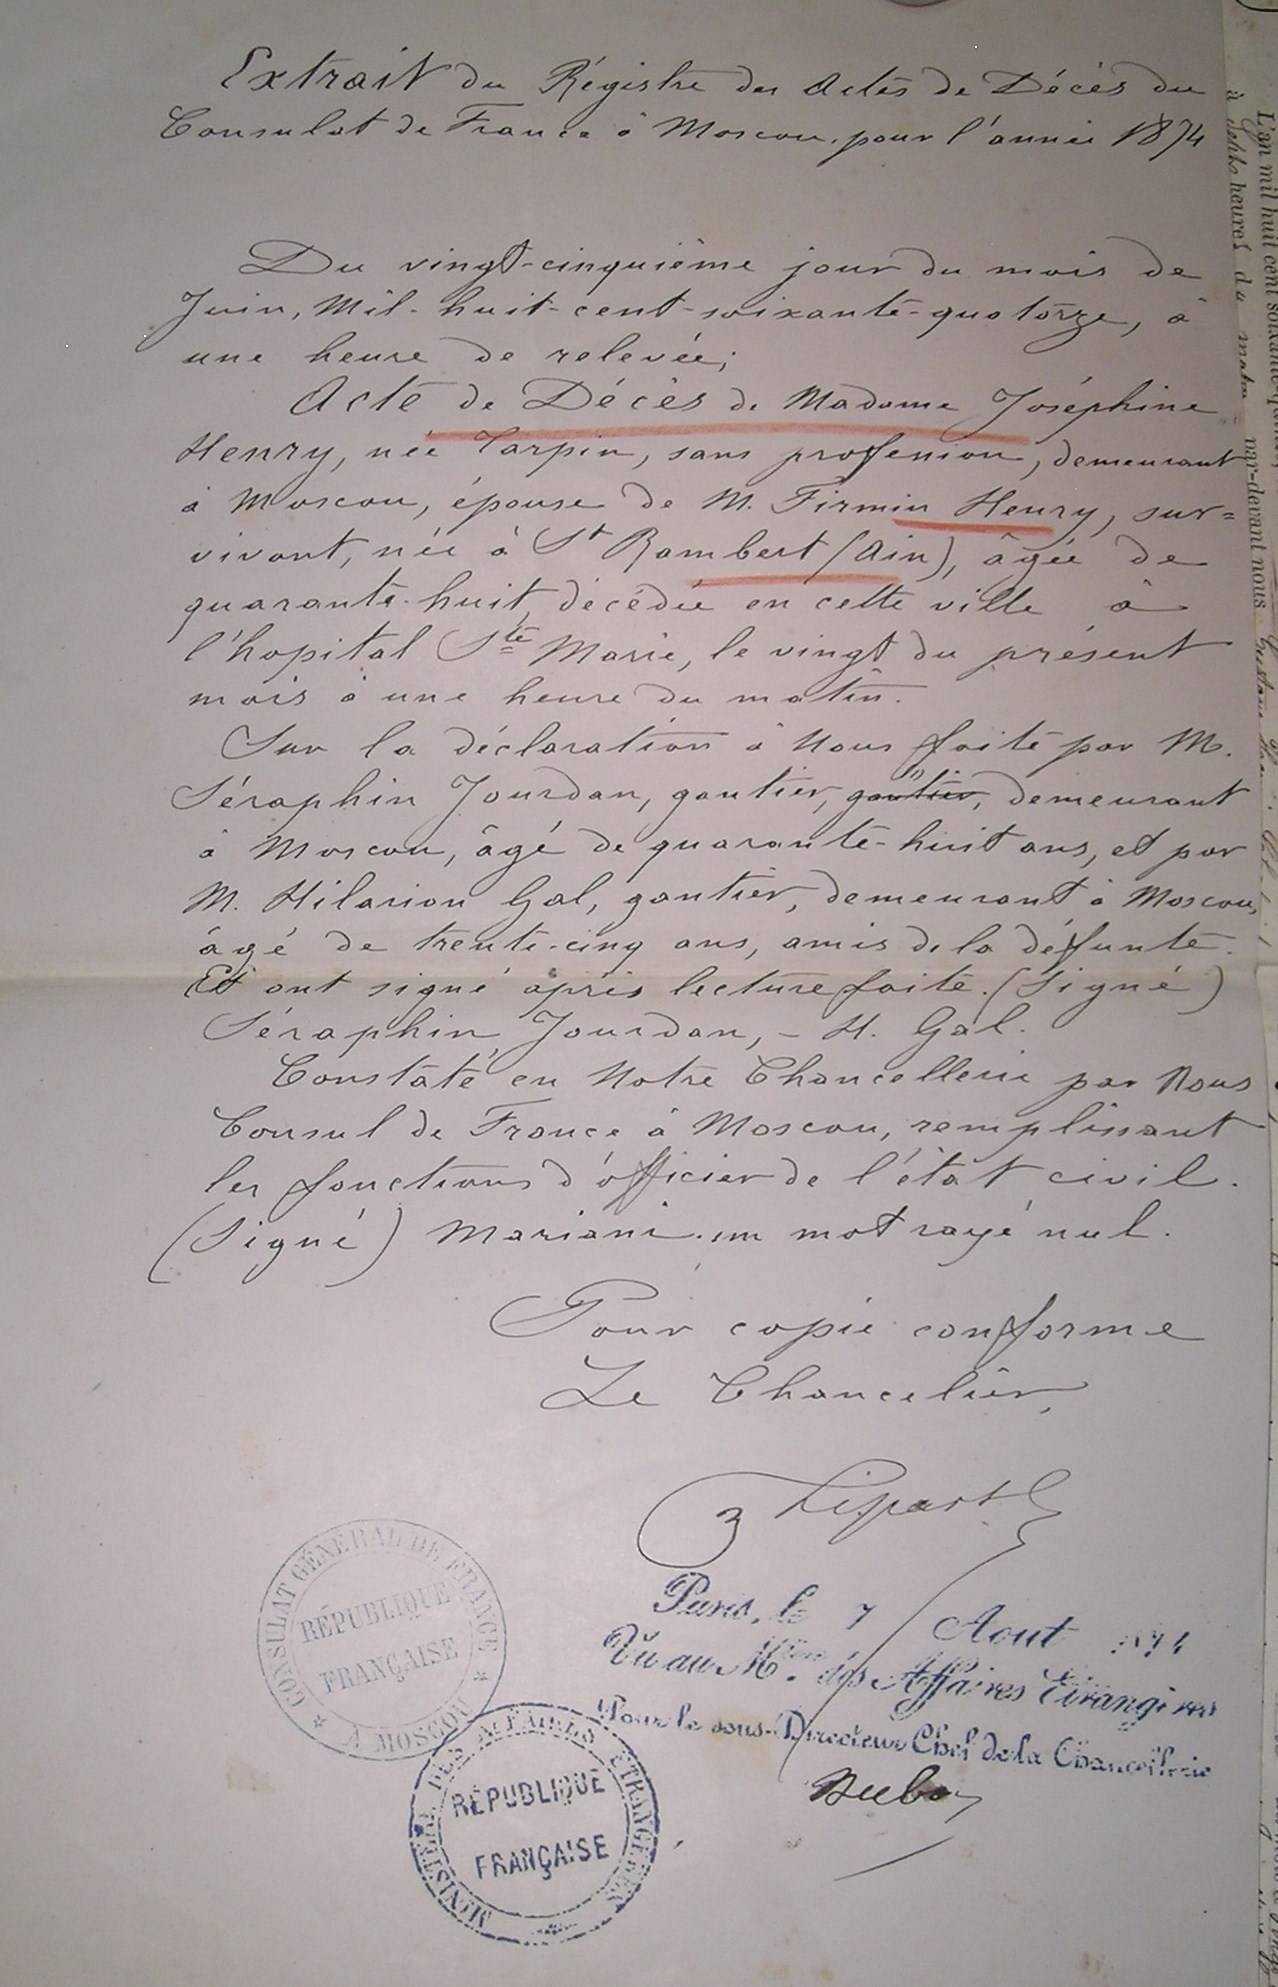 Extrait du Régistre des Actes de Décès du
Consulat de France à Moscou, pour l'année 1874
Du vingt-cinquième jour du mois de
Juin, Mil-huit-cent-soixante-quatorze, à
une heure de relevée;
Acte de Décès de Madame Joséphine
Henry, née Tarpin, sans profession, demeurant
à Moscou, épouse de M. Firmin Henry, sur=
vivant, née à St Rambert (Ain), âgée de
quarante-huit, décédée en cette ville à
l'hopital Ste Marie, le vingt du présent
mois à une heure du matin.
Sur la déclaration à Nous faite par M.
Séraphin Jourdan, gantier, gantier, demeurant
à Moscou, âgé de quarante-huit ans, et par
M. Hilarion Gal, gantier, demeurant à Moscou,
âgé de trente-cinq ans, amis de la défunte.
Et ont signé après lecture faite. (Signé)
Séraphin Jourdan, - H. Gal.
Constaté en Notre Chancellerie par Nous
Consul de France à Moscou, remplissant
les fonctions d'officier de l'état civil.
(Signé) Mariani. un mot rayé nul.
Pour copie conforme
Le Chancelier,
Paris, le 7 Aout 1874
Vu au Mtère des Affaires Etrangères
Pour le sous-Directeur Chef de la Chancellerie
CONSULAT GÉNÉRAL DE FRANCE
RÉPUBLIQUE
FRANÇAISE
* A MOSCOU *
MINISTÈRE DES AFFAIRES ÉTRANGÈRES
RÉPUBLIQUE
FRANÇAISE
L'an mil huit cent soixante
heures du matin par-devant nous